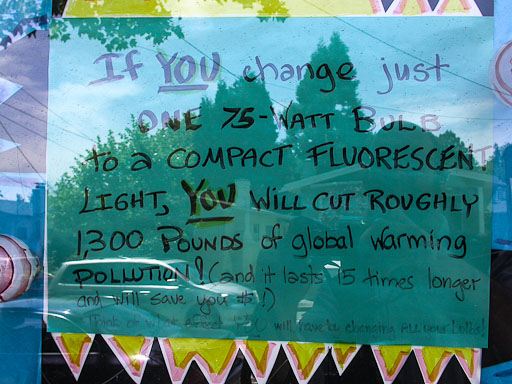 If YOU change just
ONE 75-WATT BULB
to a COMPACT FLUORESCENT
LIGHT, YOU WILL CUT ROUGHLY
1,300 POUNDS of global warming
POLLUTION! (and it lasts 15 times longer
and will save you $!)
Think of what will have by changing ALL your bulbs!